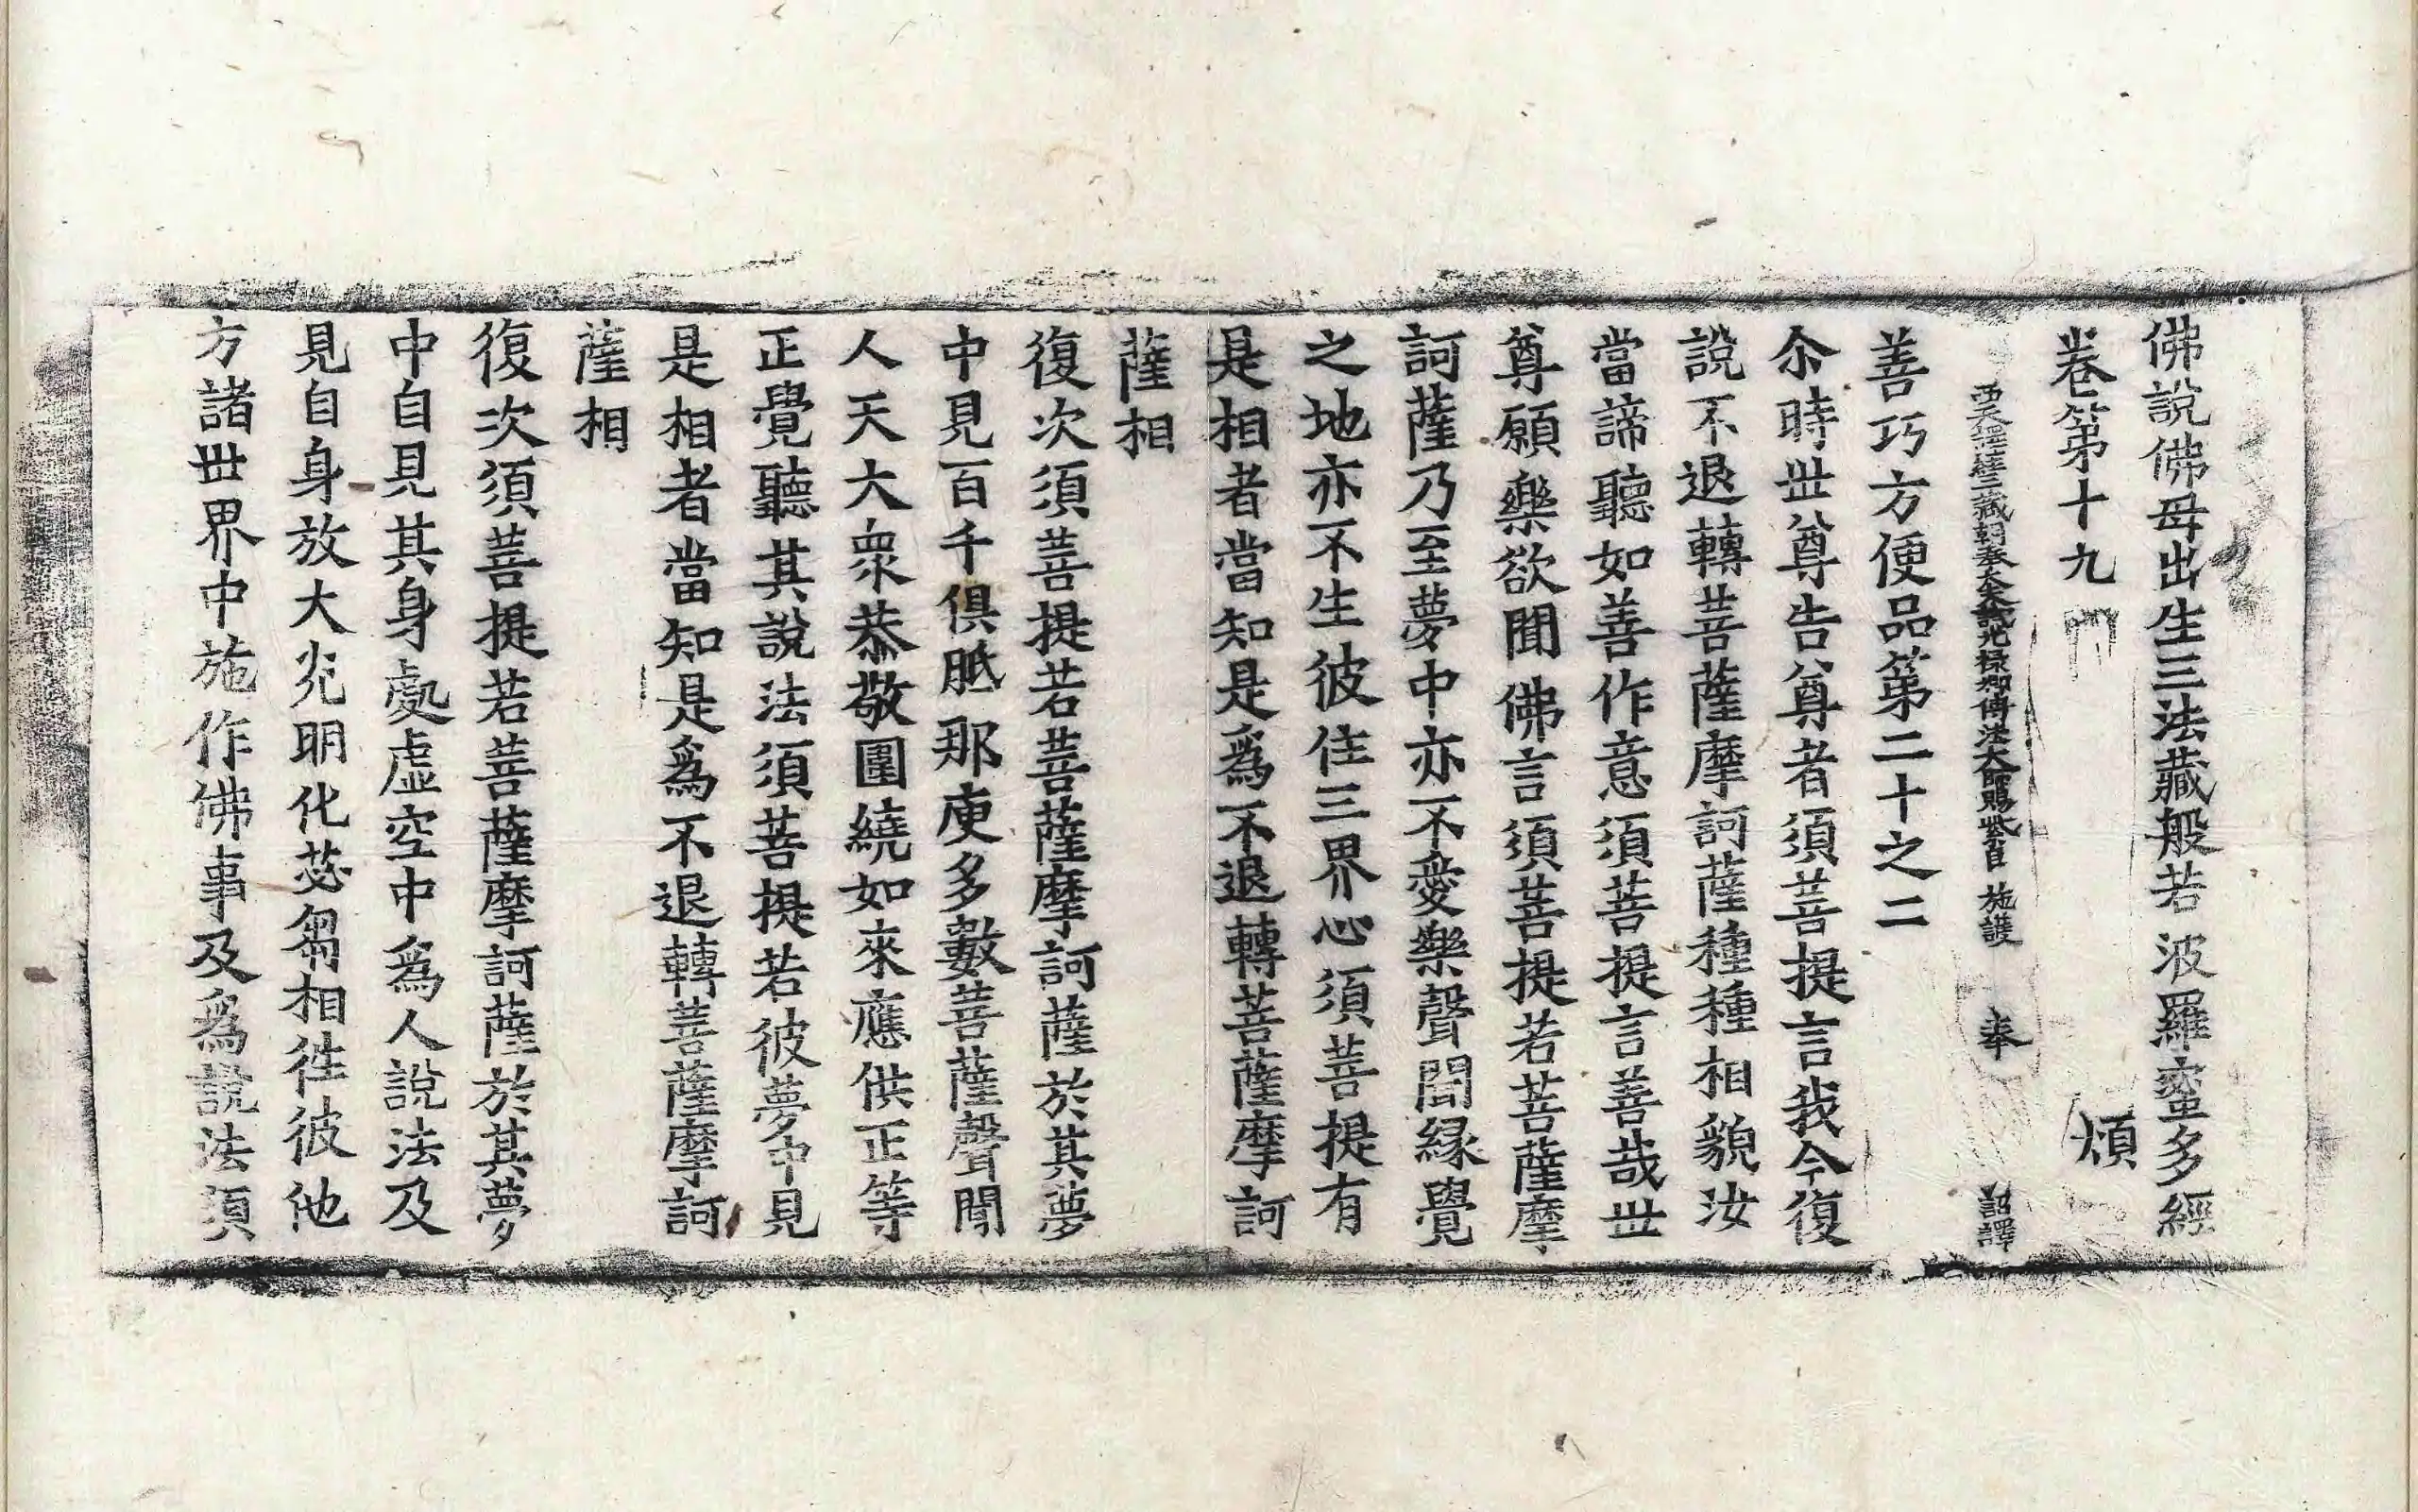 佛說佛母出生三法藏般若波羅蜜多經
卷第十九 煩
西天譯經三藏朝奉大夫試光祿卿傳法大師賜紫臣 施護 奉 詔譯
善巧方便品第二十之二
尒時世尊告尊者須菩提言我今復
說不退轉菩薩摩訶薩種種相貌汝
當諦聽如善作意須菩提言善哉世
尊願樂欲聞佛言須菩提若菩薩摩
訶薩乃至夢中亦不愛樂聲聞緣覺
之地亦不生彼住三界心須菩提有
是相者當知是爲不退轉菩薩摩訶
薩相
復次須菩提若菩薩摩訶薩於其夢
中見百千俱胝那庾多數菩薩聲聞
人天大衆恭敬圍繞如來應供正等
正覺聽其說法須菩提若彼夢中見
是相者當知是爲不退轉菩薩摩訶
薩相
復次須菩提若菩薩摩訶薩於其夢
中自見其身處虛空中爲人說法及
見自身放大光明化苾芻相徃彼他
方諸世界中施作佛事及爲說法須